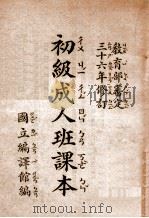 教育部審定
三十六年修訂
初級成人班課本
國立編譯館編